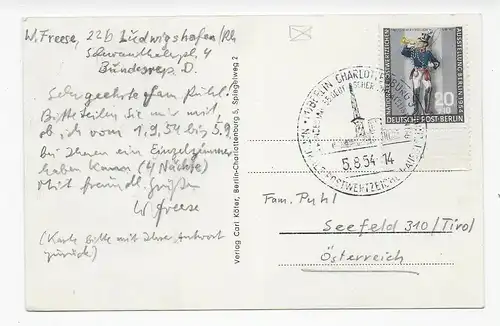 W. Freese, 22b Ludwigshafen/Rh
Schwanthalerpl. 4
Bundesrep. D.
Sehr geehrte Fam. Puhl.
Bitte teilen Sie mir mit,
ob ich vom 1.9.54 bis 5.9.
bei Ihnen ein Einzelzimmer
haben kann (4 Nächte)
Mit freundl. Grüßen
W. Freese
(Karte bitte mit Ihrer Antwort
zurück)
Verlag Carl Köfer, Berlin-Charlottenburg 5, Spiegelweg 2
BERLIN-CHARLOTTENBURG
5.8.54-14
AUSSTELLUNG BERLIN 1954
20
+10
DEUTSCHE POST·BERLIN
Fam. Puhl
Seefeld 310/Tirol
Österreich